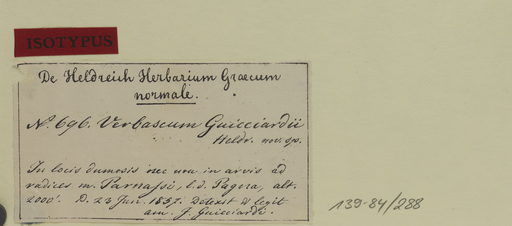 ISOTYPUS
De Heldreich Herbarium Graecum
normale.
N.o 696. Verbascum Guicciardii
Heldr. nov. sp.
In locis dumosis nec non in arvis ad
radices m. Parnassi, l. d. Pagora, alt.
2000'. D. 23 Jun. 1857. Detexit & legit
am. J. Guicciardi.
139-84/288